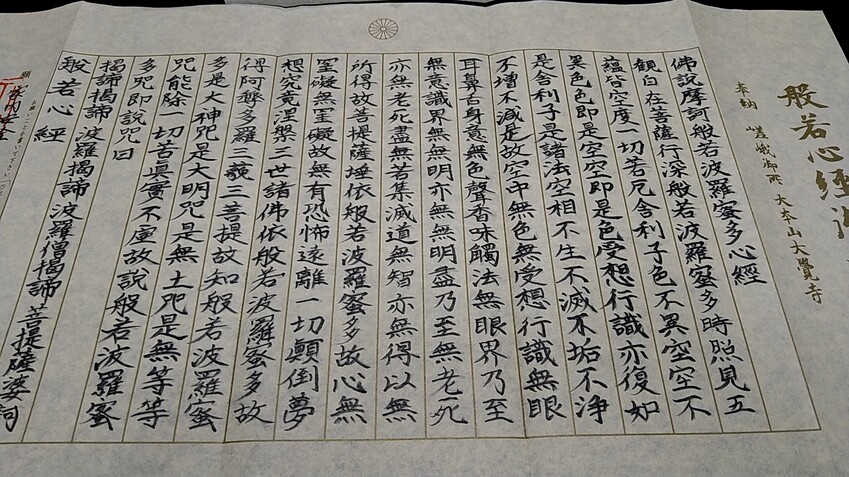 般若心經
奉納 嵯峨御所 大本山大覺寺
佛説摩訶般若波羅蜜多心經
觀自在菩薩行深般若波羅蜜多時照見五
蘊皆空度一切苦厄舎利子色不異空空不
異色色即是空空即是色受想行識亦復如
是舎利子是諸法空相不生不滅不垢不浄
不増不減是故空中無色無受想行識無眼
耳鼻舌身意無色聲香味觸法無眼界乃至
無意識界無無明亦無無明盡乃至無老死
亦無老死盡無苦集滅道無智亦無得以無
所得故菩提薩埵依般若波羅蜜多故心無
罣礙無罣礙故無有恐怖遠離一切顛倒夢
想究竟涅槃三世諸佛依般若波羅蜜多故
得阿耨多羅三藐三菩提故知般若波羅蜜
多是大神咒是大明咒是無上咒是無等等
咒能除一切苦真實不虚故説般若波羅蜜
多咒即説咒曰
揭諦揭諦 波羅揭諦 波羅僧揭諦 菩提薩婆訶
般若心經
願